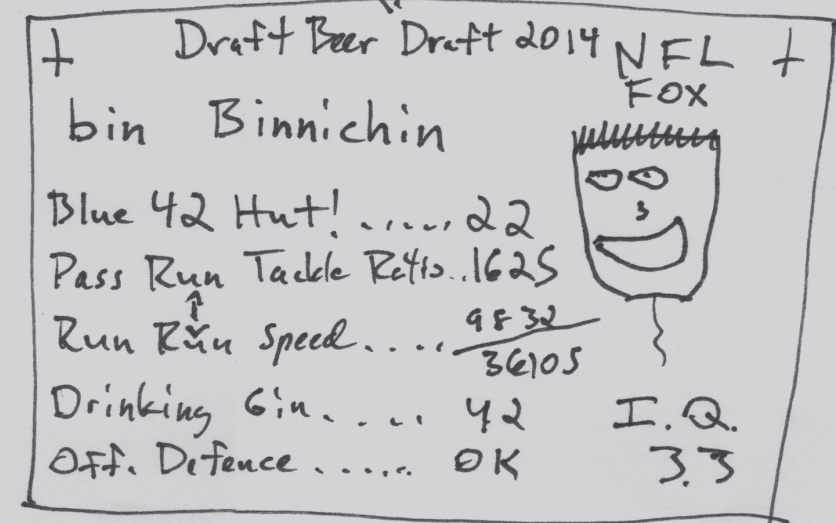 Draft Beer Draft 2014 NFL
FOX
bin Binnichin
Blue 42 Hut!..... 22
Pass Run Tackle Ratio..1625
Run Run Speed.... 9832/36105
Drinking Gin..... 42
I.Q.
Off. Defence...... OK
3.3